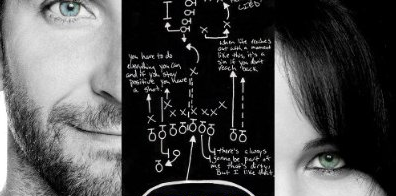 LIED"
you have to do
everything you can
and if you stay
positive you have
a shot.
when life reaches
out with a moment
like this, it's a
sin if you don't
reach back
there's always
gonna be part of
me that's dirty.
But I like that